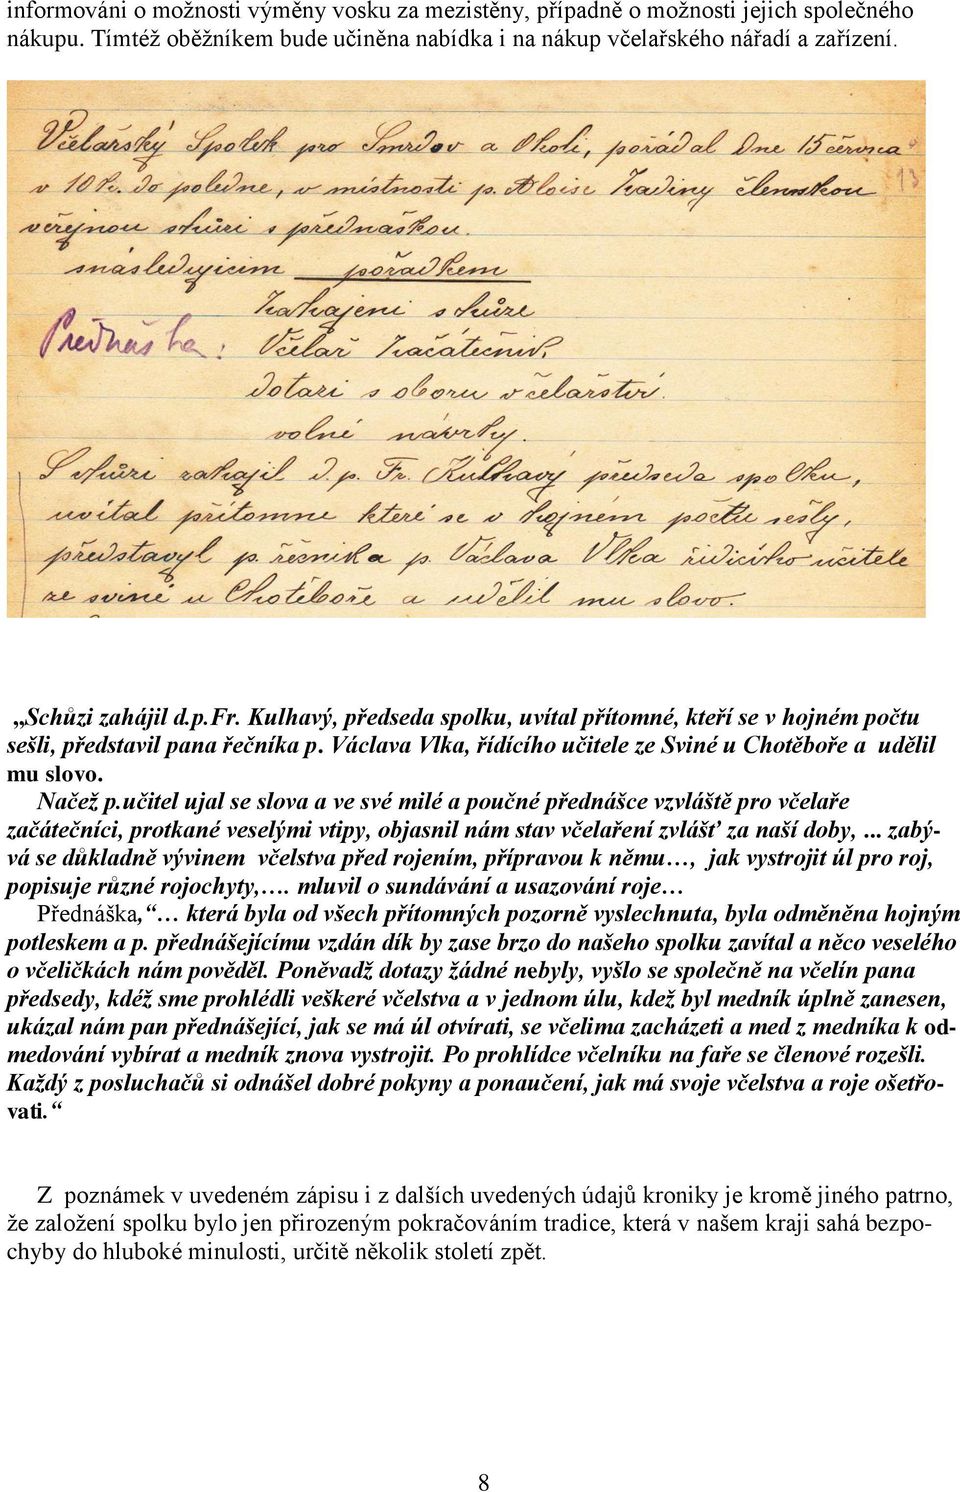 informováni o možnosti výměny vosku za mezistěny, případně o možnosti jejich společného
nákupu. Tímtéž oběžníkem bude učiněna nabídka i na nákup včelařského nářadí a zařízení.
Včelařský Spolek pro Smrdov a Okoli, pořádal Dne 15 června
v 10 h. do poledne, v místnosti p. Aloise Kadiny člennskou 13
veřejnou schůzi s přednaškou.
snásledujicim pořadkem
Zahajeni schůze
Prědnáška: Včelař začátečnik,
dotazi s oboru včelařství.
volné návrhy.
Schůzi zahajil d.p. Fr. Kulhavý předseda spolku,
uvítal přítomne které se v hojném počtu sešly,
představyl p. řěčnika p. Václava Vlka řidicího učitele
ze sviné u Chotěboře a udělil mu slovo.
„Schůzi zahájil d.p.Fr. Kulhavý, předseda spolku, uvítal přítomné, kteří se v hojném počtu
sešli, představil pana řečníka p. Václava Vlka, řídícího učitele ze Sviné u Chotěboře a udělil
mu slovo.
Načež p.učitel ujal se slova a ve své milé a poučné přednášce vzvláště pro včelaře
začátečníci, protkané veselými vtipy, objasnil nám stav včelaření zvlášť za naší doby, ... zabý-
vá se důkladně vývinem včelstva před rojením, přípravou k němu…, jak vystrojit úl pro roj,
popisuje různé rojochyty,…. mluvil o sundávání a usazování roje…
Přednáška,“… která byla od všech přítomných pozorně vyslechnuta, byla odměněna hojným
potleskem a p. přednášejícímu vzdán dík by zase brzo do našeho spolku zavítal a něco veselého
o včeličkách nám pověděl. Poněvadž dotazy žádné nebyly, vyšlo se společně na včelín pana
předsedy, kdéž sme prohlédli veškeré včelstva a v jednom úlu, kdež byl medník úplně zanesen,
ukázal nám pan přednášející, jak se má úl otvírati, se včelima zacházeti a med z medníka k od-
medování vybírat a medník znova vystrojit. Po prohlídce včelníku na faře se členové rozešli.
Každý z posluchačů si odnášel dobré pokyny a ponaučení, jak má svoje včelstva a roje ošetřo-
vati.“
Z poznámek v uvedeném zápisu i z dalších uvedených údajů kroniky je kromě jiného patrno,
že založení spolku bylo jen přirozeným pokračováním tradice, která v našem kraji sahá bezpo-
chyby do hluboké minulosti, určitě několik století zpět.
8